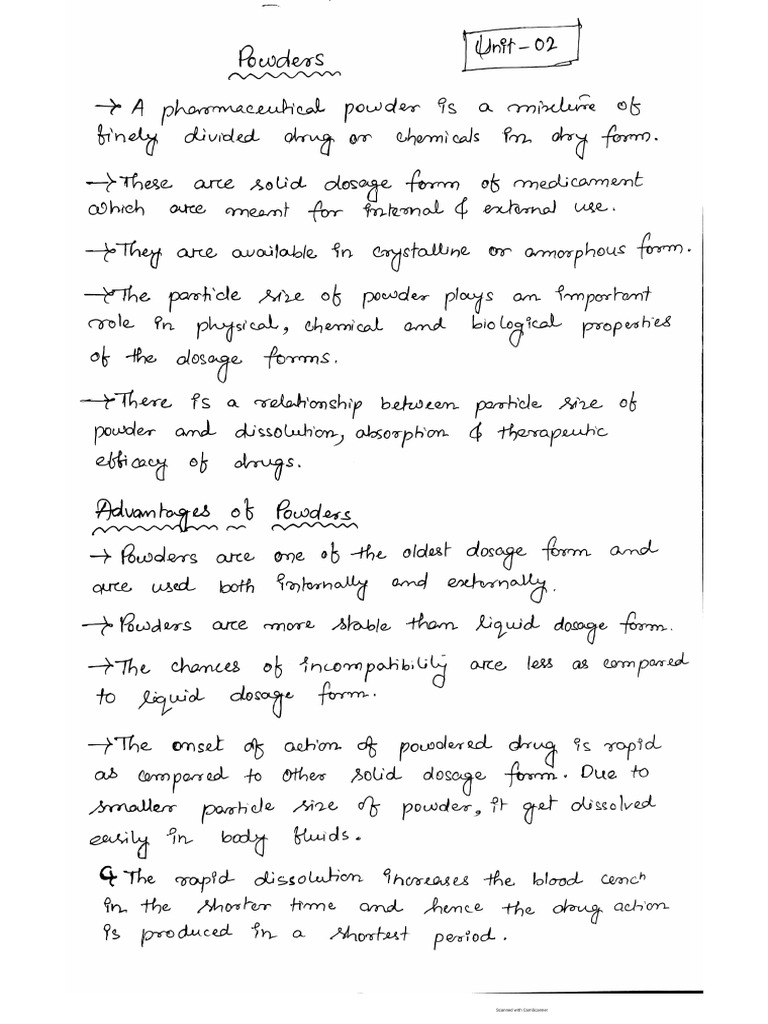 Unit-02
Powders
→ A pharmaceutical powder is a mixture of
finely divided drug or chemicals in dry form.
→ These are solid dosage form of medicament
which are meant for internal & external use.
→ They are available in crystalline or amorphous form.
→ The particle size of powder plays an important
role in physical, chemical and biological properties
of the dosage forms.
→ There is a relationship between particle size of
powder and dissolution, absorption & therapeutic
efficacy of drugs.
Advantages of Powders
→ Powders are one of the oldest dosage form and
are used both internally and externally.
→ Powders are more stable than liquid dosage form.
→ The chances of incompatibility are less as compared
to liquid dosage form.
→ The onset of action of powdered drug is rapid
as compared to other solid dosage form. Due to
smaller particle size of powder, it get dissolved
easily in body fluids.
↳ The rapid dissolution increases the blood concn
in the shorter time and hence the drug action
is produced in a shortest period.
Scanned with CamScanner